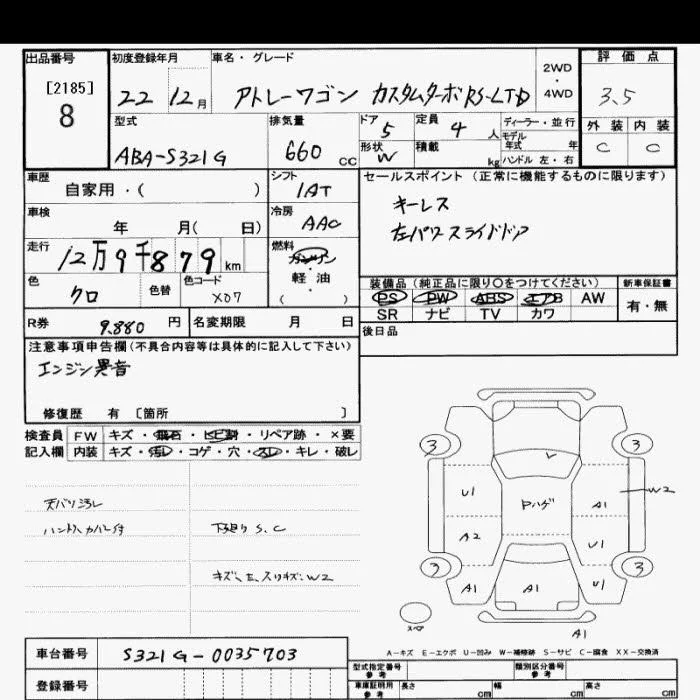 出品番号
[2185]
8
初度登録年月
22 12月
車名・グレード
アトレーワゴン カスタムターボRS-LTD
2WD
・
4WD
評価点
3.5
外装 内装
C C
型式
ABA-S321G
排気量
660 CC
ドア 5
形状 W
定員 4 人
積載 kg
ディーラー・並行
モデル
年式 年
ハンドル 左・右
車歴
自家用・( )
シフト
1AT
車検
年 月( 日)
冷房
AAC
走行
12万9千879km
燃料
ガソリン
・
軽油
( )
色
クロ
色替
色コード
X07
セールスポイント(正常に機能するものに限ります)
キーレス
左パワースライドドア
装備品(純正品に限り○をつけてください)
PS PW ABS エアB AW
SR ナビ TV カワ
新車保証書
有・無
R券 9.880 円
名変期限 月 日
後日品
注意事項申告欄(不具合内容等は具体的に記入して下さい)
エンジン異音
修復歴 有 〔箇所 〕
検査員 FW キズ・飛石・ヒビ割・リペア跡・×要
記入欄 内装 キズ・汚れ・コゲ・穴・スレ・キレ・破レ
天バリ汚レ
ハンドルカバー付
下廻り S.C
キズ、E、スリキズ、W2
3 3
U1 Pハゲ A1 W2
A2 U1
3 3
A1 A1 U1
スペア
A1
A-キズ E-エクボ U-凹み W-補修跡 S-サビ C-腐食 XX-交換済
車台番号
S321G-0035703
登録番号
型式指定番号
参考
類別区分番号
参考
車庫証明用
参考
長さ cm
幅 cm
高さ cm